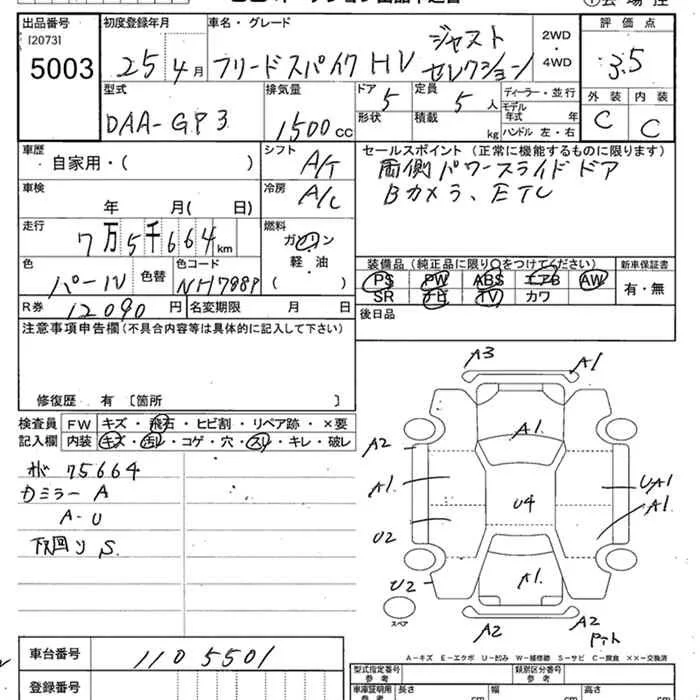 出品番号
[2073]
5003
初度登録年月
25年4月
車名・グレード
フリードスパイク HV ジャスト
セレクション
2WD
・
4WD
評価点
3.5
外装 内装
C C
型式
DAA-GP3
排気量
1500cc
ドア 5
形状
定員 5人
積載 kg
ディーラー・並行
モデル
年式 年
ハンドル 左・右
車歴
自家用・( )
シフト
A/T
セールスポイント (正常に機能するものに限ります)
両側パワースライドドア
Bカメラ、ETC
車検
年 月( 日)
冷房
A/C
走行
7万5千664km
燃料
ガソリン
軽・油
( )
色
パール
色替
色コード
NH788P
装備品 (純正品に限り○をつけてください)
PS PW ABS エアB AW
SR ナビ TV カワ
新車保証書
有・無
R券 12090円
名変期限 月 日
後日品
注意事項申告欄 (不具合内容等は具体的に記入して下さい)
修復歴 有 〔箇所 〕
検査員
記入欄
FW キズ・飛石・ヒビ割・リペア跡・×要
内装 キズ・汚レ・コゲ・穴・スレ・キレ・破レ
75664
カミラー A
A-U
下回り S
A3
A1
A1
A2
A1
U2
U2
U4
UA1
A1
A1
A2
A2
スペア
A-キズ E-エクボ U-凹み W-補修跡 S-サビ C-腐食 ××-交換済
車台番号
1105501
登録番号
型式指定番号
参考
類別区分番号
参考
車庫証明用
参考
長さ cm
幅 cm
高さ cm